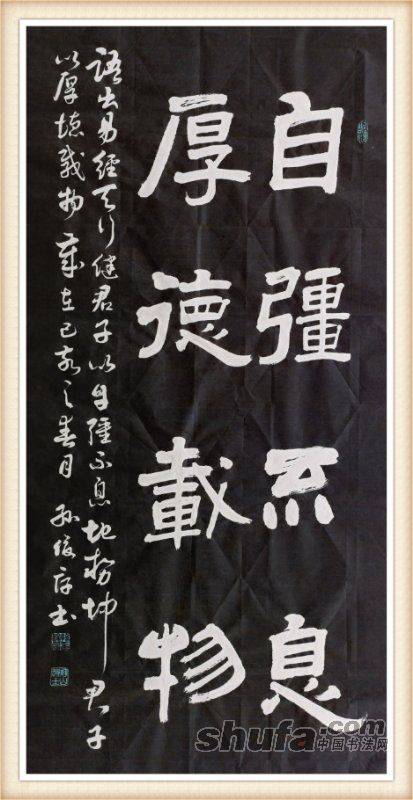 自彊不息
厚德載物
語出易經天行健君子以自彊不息地势坤君子
以厚德載物歲在己亥之春月孫书
shufa.com
中国书法网